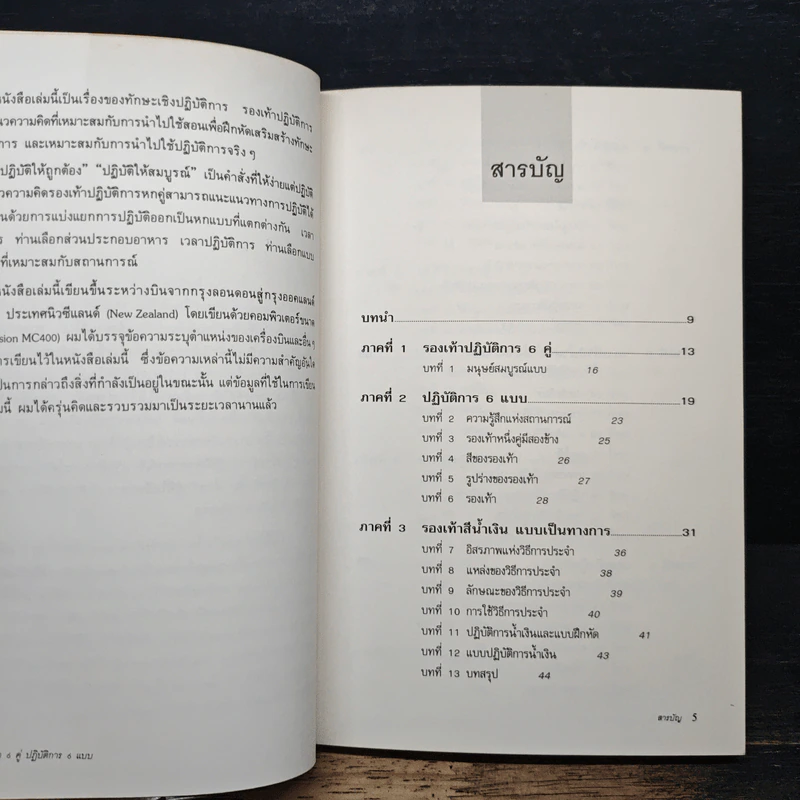 หนังสือเล่มนี้เป็นเรื่องของทักษะเชิงปฏิบัติการ รองเท้าปฏิบัติการ
แนวความคิดที่เหมาะสมกับการนำไปใช้สอนเพื่อฝึกหัดเสริมสร้างทักษะ
การ และเหมาะสมกับการนำไปใช้ปฏิบัติการจริง ๆ
ปฏิบัติให้ถูกต้อง” “ปฏิบัติให้สมบูรณ์” เป็นคำสั่งที่ให้ง่ายแต่ปฏิบัติ
วความคิดรองเท้าปฏิบัติการหกคู่สามารถแนะแนวทางการปฏิบัติได้
นด้วยการแบ่งแยกการปฏิบัติออกเป็นหกแบบที่แตกต่างกัน เวลา
ร ท่านเลือกส่วนประกอบอาหาร เวลาปฏิบัติการ ท่านเลือกแบบ
ที่เหมาะสมกับสถานการณ์
หนังสือเล่มนี้เขียนขึ้นระหว่างบินจากกรุงลอนดอนสู่กรุงออคแลนด์
ประเทศนิวซีแลนด์ (New Zealand) โดยเขียนด้วยคอมพิวเตอร์ขนาด
sion MC400) ผมได้บรรจุข้อความระบุตำแหน่งของเครื่องบินและอื่น ๆ
ารเขียนไว้ในหนังสือเล่มนี้ ซึ่งข้อความเหล่านี้ไม่มีความสำคัญอันใด
เป็นการกล่าวถึงสิ่งที่กำลังเป็นอยู่ในขณะนั้น แต่ข้อมูลที่ใช้ในการเขียน
มนี้ ผมได้ครุ่นคิดและรวบรวมมาเป็นระยะเวลานานแล้ว
6 คู่ ปฏิบัติการ 6 แบบ
สารบัญ
บทนำ 9
ภาคที่ 1 รองเท้าปฏิบัติการ 6 คู่ 13
บทที่ 1 มนุษย์สมบูรณ์แบบ 16
ภาคที่ 2 ปฏิบัติการ 6 แบบ 19
บทที่ 2 ความรู้สึกแห่งสถานการณ์ 23
บทที่ 3 รองเท้าหนึ่งคู่มีสองข้าง 25
บทที่ 4 สีของรองเท้า 26
บทที่ 5 รูปร่างของรองเท้า 27
บทที่ 6 รองเท้า 28
ภาคที่ 3 รองเท้าสีน้ำเงิน แบบเป็นทางการ 31
บทที่ 7 อิสรภาพแห่งวิธีการประจำ 36
บทที่ 8 แหล่งของวิธีการประจำ 38
บทที่ 9 ลักษณะของวิธีการประจำ 39
บทที่ 10 การใช้วิธีการประจำ 40
บทที่ 11 ปฏิบัติการน้ำเงินและแบบฝึกหัด 41
บทที่ 12 แบบปฏิบัติการน้ำเงิน 43
บทที่ 13 บทสรุป 44
สารบัญ 5